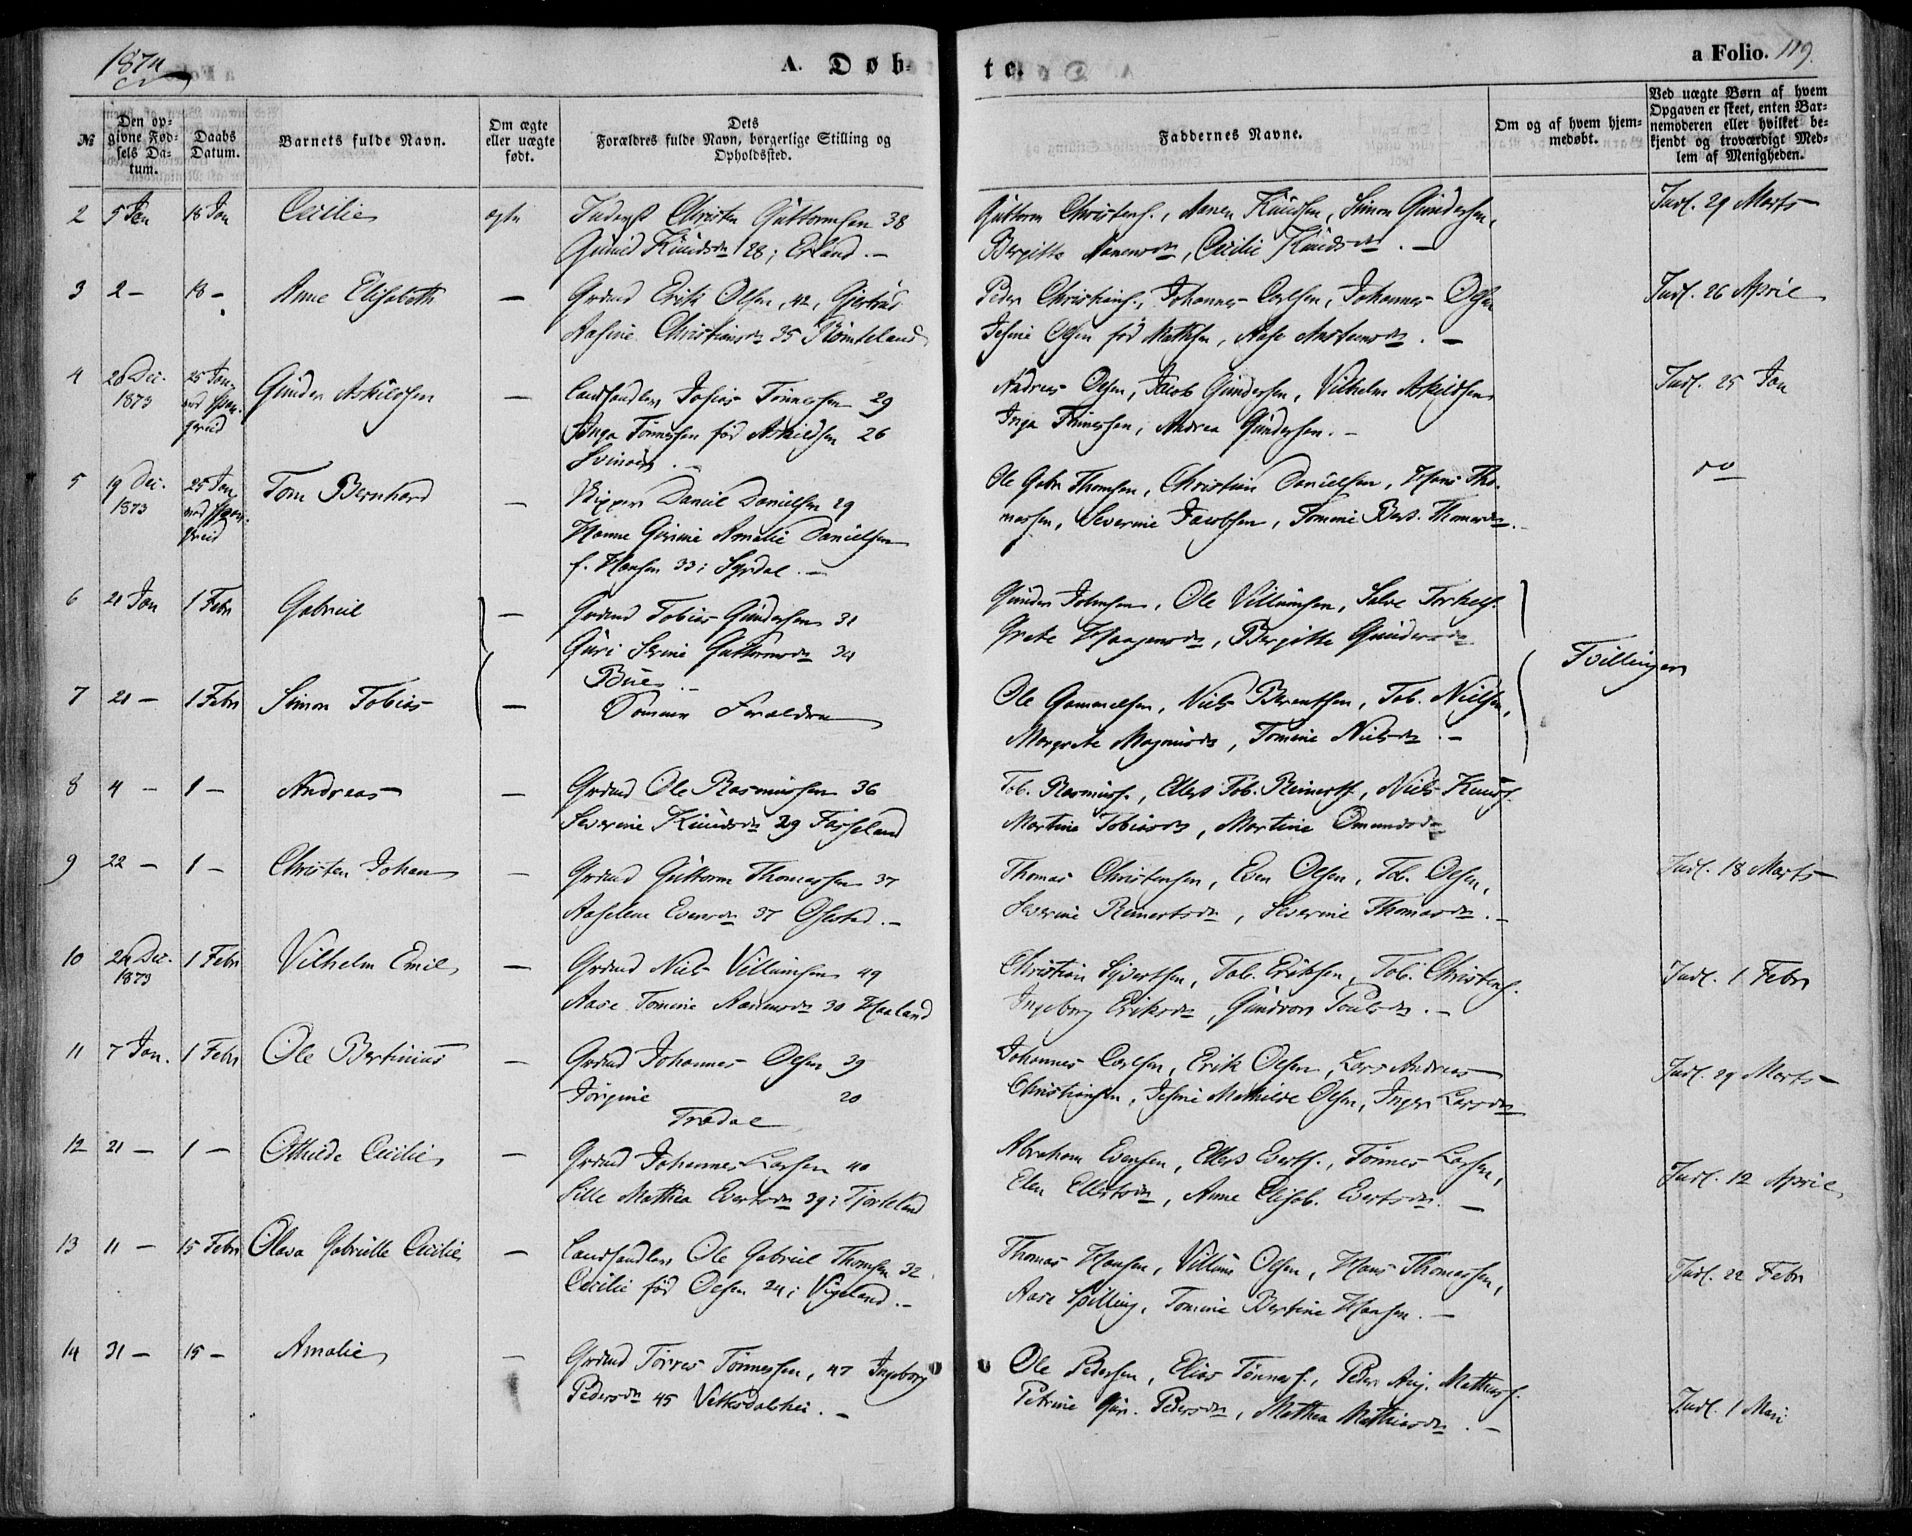 1874
A. Døb-
te.
a Folio. 119.
№
Den opgivne Fødsels Datum.
Daabs Datum.
Barnets fulde Navn.
Om ægte eller uægte født.
Dets Forældres fulde Navn, borgerlige Stilling og Opholdssted.
Faddernes Navne.
Om og af hvem hjemmedøbt.
Ved uægte Børn af hvem Opgaven er skeet, enten Barnemoderen eller hvilket bekjendt og troværdigt Medlem af Menigheden.
2 5 Jan 18 Jan Cecilie ægte Christen Guttormsen 38
Gunild Knudsdr 28; Erland. —
Guttorm Christens., Aanen Knudsen, Simon Gundersen,
Bergitte Aanensdr, Cecilie Knudsdr. —
Indf. 29 Marts
3 2 — 18 — Anne Elisabeth — Grdmd Erik Olsen, 42,
Aasine Christiansdr 35
Peder Christians., Johannes Carlsen, Johannes Olsen
Jesine Olsen fød Mathsen, Aase
Indf. 26 April
4 28 Dec. 1873 25 Jan Gunder Askildsen — Landhandler Josias Tönnessen 29
Inga Tönnessen fød Askildsen 26
Svinør. —
Andreas Olsen, Jacob Gundersen, Vilhelm Askildsen
Inga Tönnessen, Andrea Gundersen. —
Indf. 25 Jan
5 19 Dec. 1873 25 Jan Tom Bernhard — Skipper Daniel Danielsen 29
Hanne Amalie Danielsen
f. Hansen 33; Syrdal. —
Ole Gabr Thomsen, Christian Danielsen, Hans Tho-
massen, Severine Jacobsen, Tomine Bert. Thomasdr.
do
6 21 Jan 1 Febr Gabriel — Grdmd Tobias Gundersen 31
Guri Serine Guttormsdr 34
Bue. —
Gunder Johnsen, Ole Villumsen, Salve Torkels.
Grete Haagensdr, Bergitte Gundersdr
Tvillinger
7 21 — 1 Febr Simon Tobias — Samme Forældre
Ole Gammelsen, Niels Berentsen, Tob. Nielsen,
Margrete Magnusdr, Tomine Nielsdr. —
8 4 — 1 — Andreas — Grdmd Ole Rasmussen 36
Severine Knudsdr 29 Fasseland
Tob. Rasmuss., Ellert Tob. Reinerts., Niels Knuds.
Martine Tobiasdr, Martine Omundsdr
9 22 — 1 — Christen Johan — Grdmd Guttorm Thomassen 37
Aaselene Evensdr 37 Ofstad. —
Thomas Christensen, Even Olsen, Tob. Olsen,
Severine Reinertsdr, Severine Thomasdr. —
Indf. 18 Marts
10 24 Dec. 1873 1 Febr Vilhelm Emil — Grdmd Niels Villumsen 49
Aase Tomine Aanensdr 30 Haaland
Christian Syvertsen, Tob. Eriksen, Tob. Christens.
Ingeborg Eriksdr, Gundvor Poulsdr. —
Indf. 1 Febr
11 7 Jan. 1 Febr Ole Bertinius — Grdmd Johannes Olsen 39
Jörgine 20
Trædal
Johannes Carlsen, Erik Olsen, Lars Andreas
Christiansen, Jesine Mathilde Olsen, Inger Larsdr
Indf. 29 Marts
12 21 — 1 — Othilde Cecilie — Grdmd Johannes Larsen 40
Sille Mathea Evertsdr 39; Tjorteland
Abraham Evensen, Ellert Everts., Tönnes Larsen,
Elen Ellertsdr, Anne Elisab. Evertsdr. —
Indf. 12 April
13 11 — 15 Febr Olava Gabrielle Cecilie — Landhandler Ole Gabriel Thomsen 32
Cecilie fød Olsen 24; Vigeland. —
Thomas Hansen, Villums Olsen, Hans Thomassen,
Aase Spilling, Tomine Bertine Hansen. —
Indf. 22 Febr
14 31 — 15 — Amalie — Grdmd Torres Tönnessen, 47 Ingeborg
Pedersdr 45 Vetksdalshei. —
Ole Pedersen, Elias Tönness., Peder Aug. Mathias.
Petrine Gur. Pedersdr, Mathea Mathiasdr. —
Indf. 1 Mai